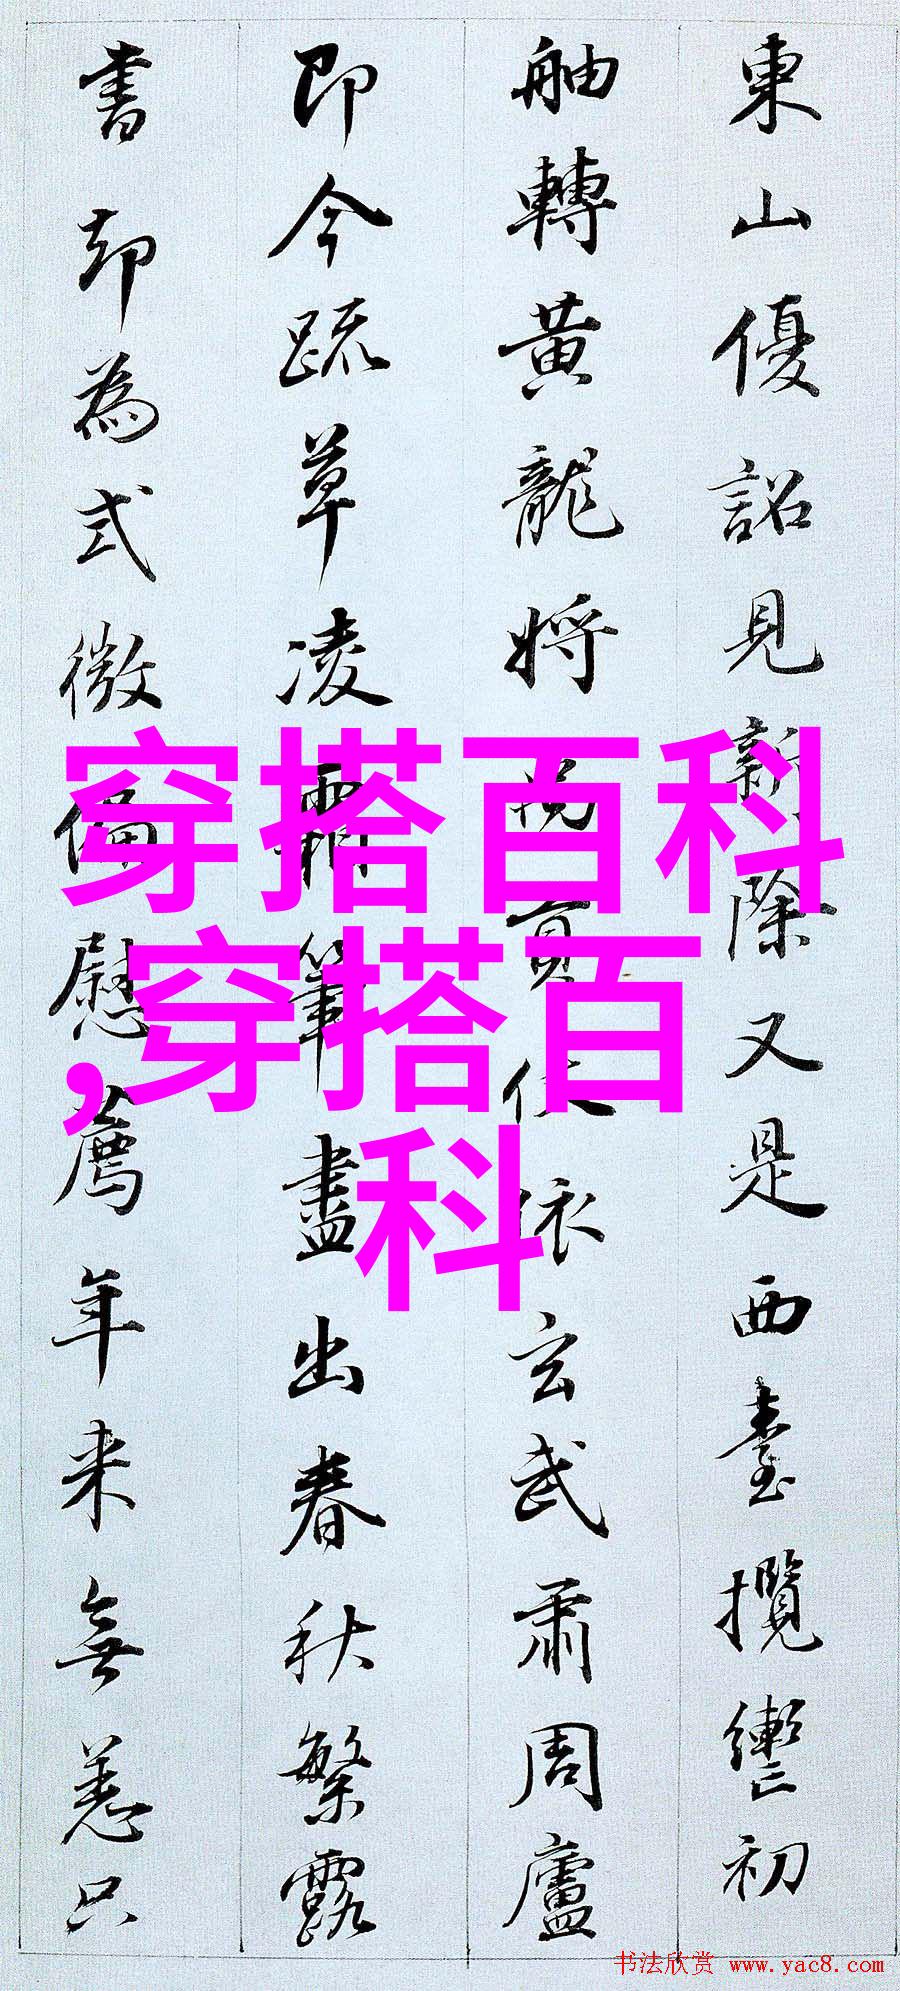 東山優詔見新除又是西臺攬轡初
舳轉黃龍將 負 依玄武肅周廬
即今疏草凌霜筆盡出春秋繁露
書却為式微偏慰薦年来無恙只
穿搭百科
,穿搭百
科
书法欣赏 www.yac8.com